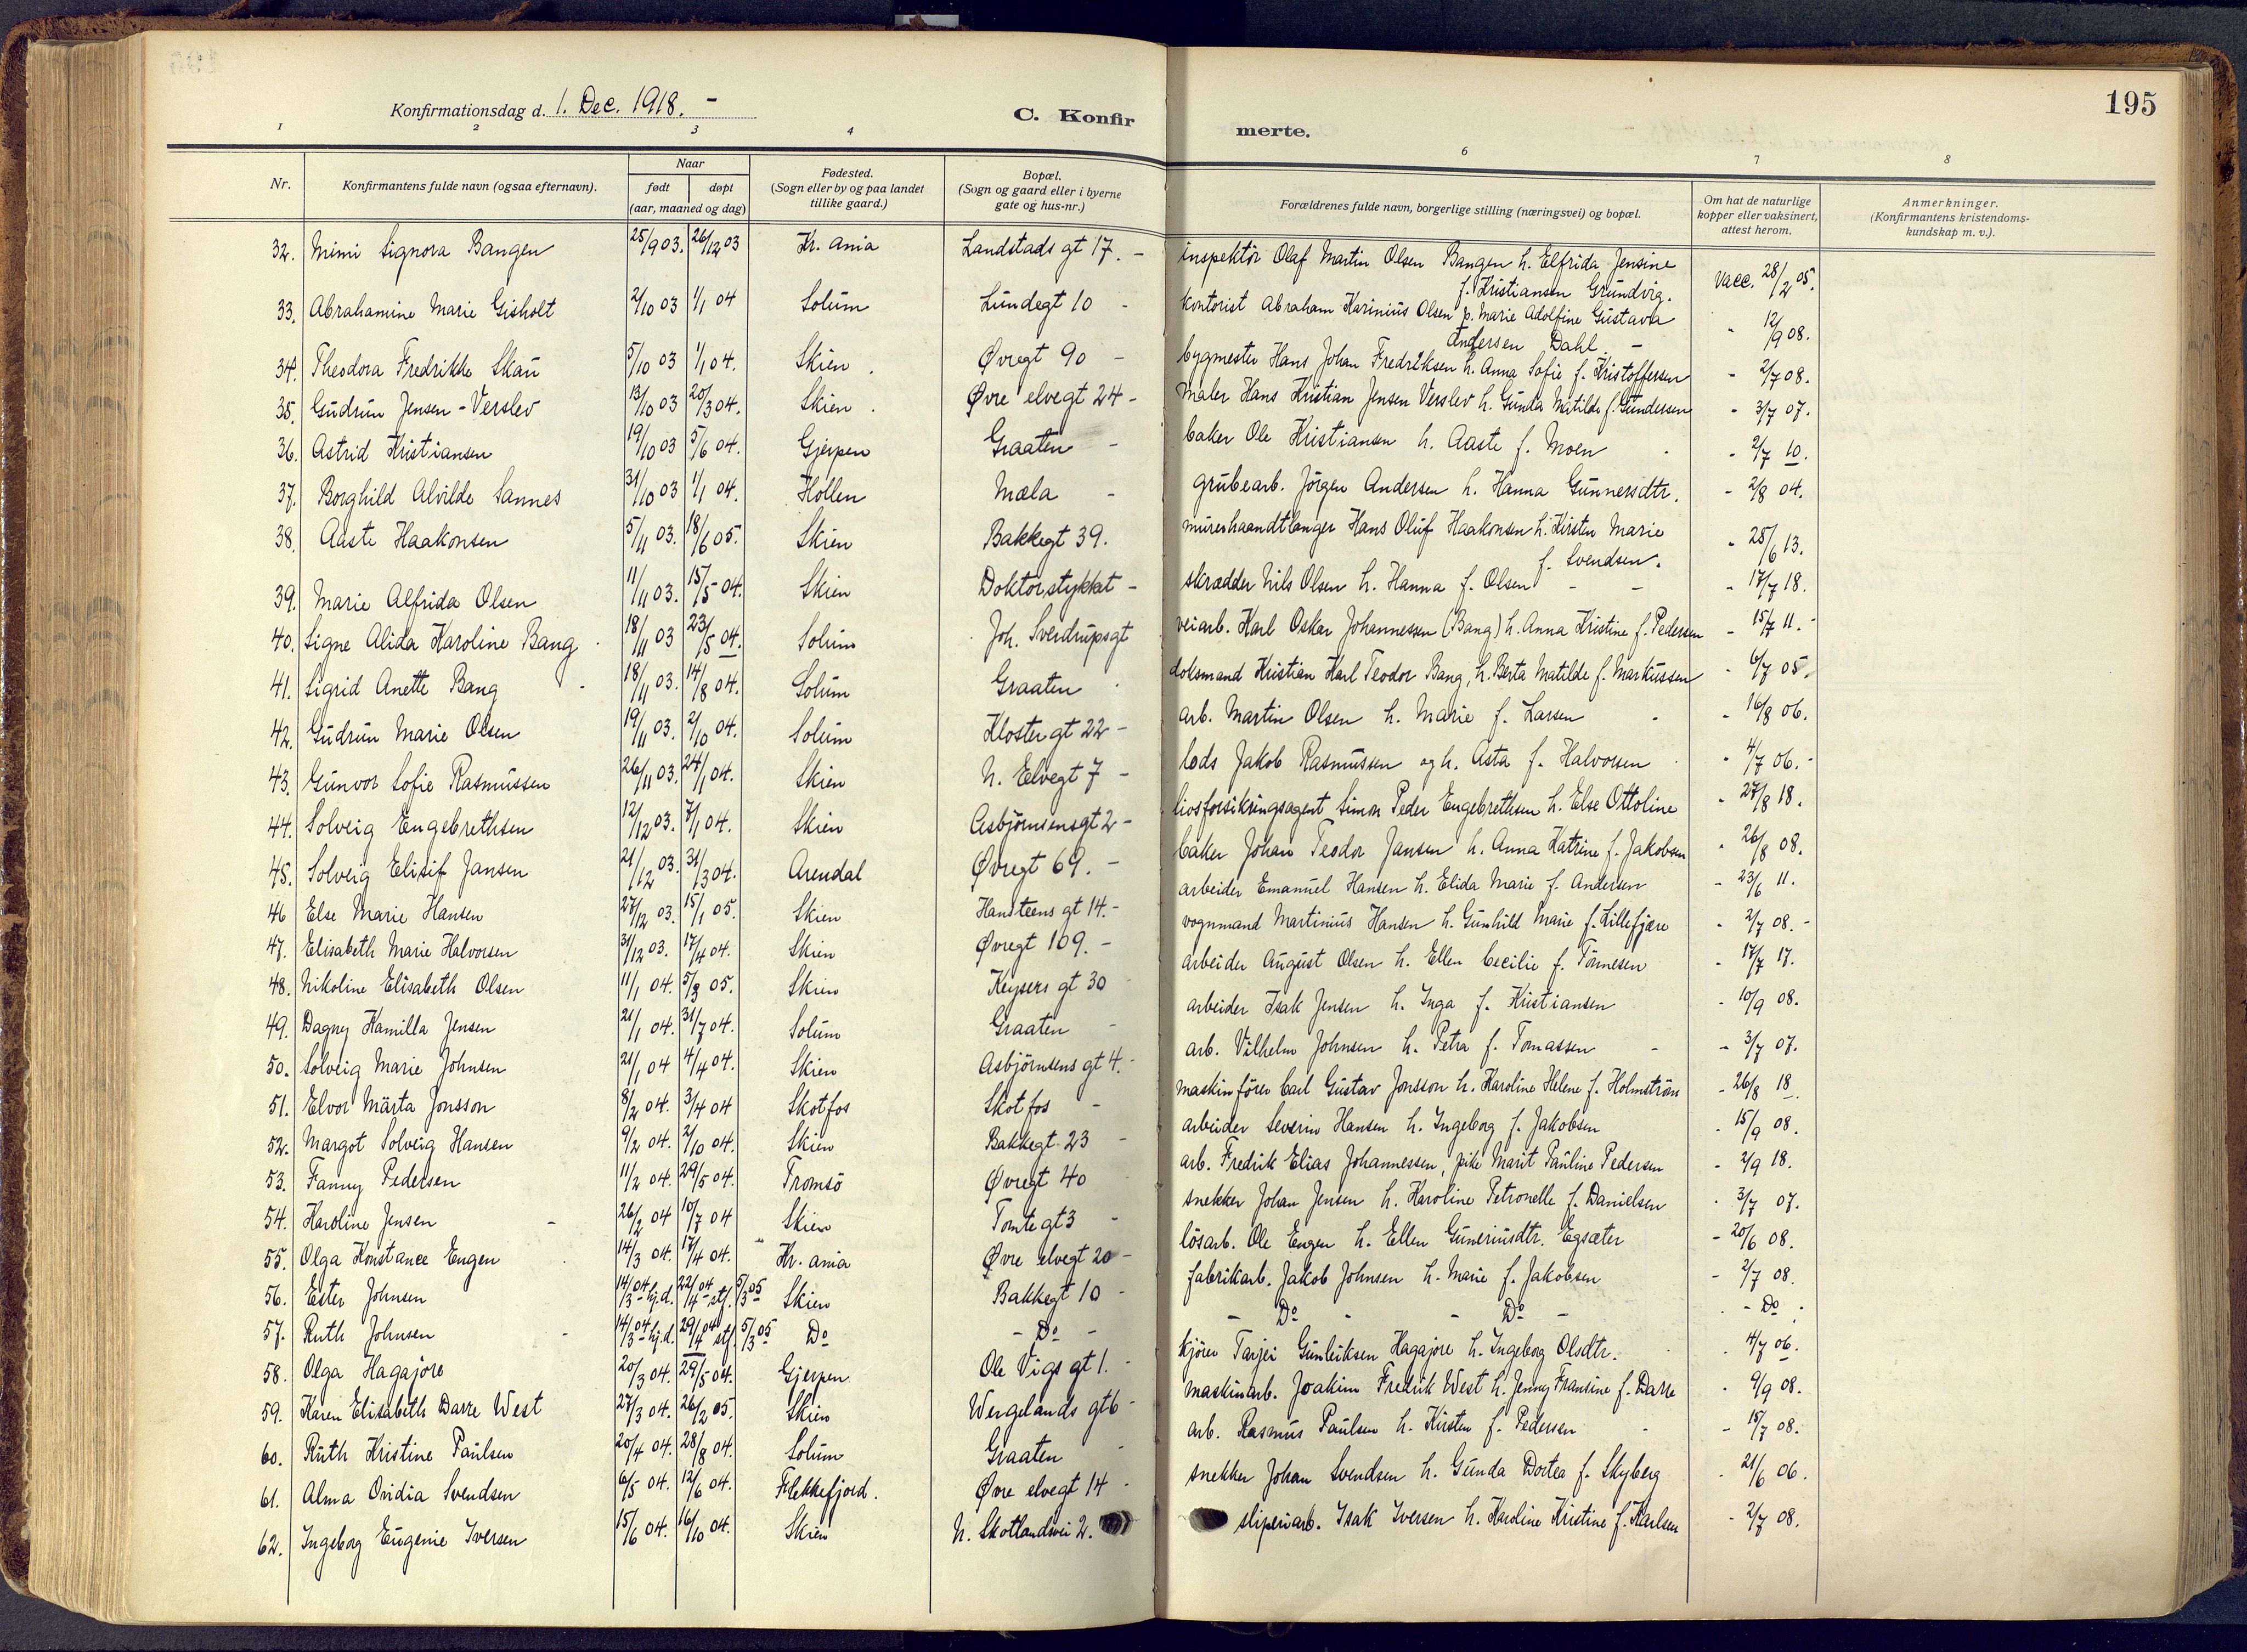 195
Konfirmationsdag d. 1. Dec. 1918. –
C. Konfirmerte.
1 2 3 4 6 7 8
Nr. | Konfirmantens fulde navn (ogsaa efternavn). | Naar født døpt (aar, maaned og dag) | Fødested. (Sogn eller by og paa landet tillike gaard.) | Bopæl. (Sogn og gaard eller i byerne gate og hus-nr.) | Forældrenes fulde navn, borgerlige stilling (næringsvei) og bopæl. | Om hat de naturlige kopper eller vaksinert, attest herom. | Anmerkninger. (Konfirmantens kristendomskundskap m. v.).
32. Mimi Signora Bangen 25/9 03. 26/12 03 Kr. ania Landstads gt 17. – inspektör Olaf Martin Olsen Bangen h. Elfrida Jensine f. Kristiansen Grundvig. Vacc. 28/2 05.
33. Abrahamine Marie Gisholt 2/10 03 1/1 04 Solum Lundegt 10 - kontorist Abraham Karinius Olsen p. Marie Adolfine Gustava Andersen Dahl – - 12/9 08.
34. Theodora Fredrikke Skau 5/10 03 1/1 04. Skien Øvregt 90 – bygmester Hans Johan Fredriksen h. Anna Sofie f. Kristoffersen - 2/7 08.
35. Gudrun Jensen - Verslev 13/10 03 20/3 04. Skien Øvre elvegt 24 – maler Hans Kristian Jensen Verslev h. Gunda Matilde f. Gundersen - 3/7 07.
36. Astrid Kristiansen 19/10 03 5/6 04. Gjerpen Graaten – baker Ole Kristiansen h. Aaste f. Moen - 2/7 10.
37. Borghild Alvilde Sannes 31/10 03 1/1 04. Hollen Mæla – grubearb. Jörgen Andersen h. Hanna Gunnersdtr. - 2/8 04.
38. Aaste Haakonsen 5/11 03. 18/6 05. Skien Bakkegt 39. murerhaandtlanger Hans Oluf Haakonsen h. Kirsten Marie f. Svendsen. - 25/6 13.
39. Marie Alfrida Olsen 11/11 03. 15/5 04. Skien Doktorstykket – skrædder Nils Olsen h. Hanna f. Olsen - - - 17/7 18.
40. Signe Alida Karoline Bang 18/11 03 23/5 04. Solum Joh. Sverdrupsgt veiarb. Karl Oskar Johannessen (Bang) h. Anna Kristine f. Pedersen - 15/7 11. -
41. Sigrid Anette Bang 18/11 03. 14/8 04. Solum Graaten doksmand Kristian Karl Teodor Bang, h. Berta Matilde f. Markussen - 6/7 05.
42. Gudrun Marie Olsen 19/11 03. 2/10 04. Solum Kloster gt 22 – arb. Martin Olsen h. Marie f. Larsen - 16/8 06.
43. Gunvor Sofie Rasmussen 26/11 03. 24/1 04. Skien N. Elvegt 7 – lods Jakob Rasmussen og h. Asta f. Halvorsen - 4/7 06. -
44. Solveig Engebrethsen 12/12 03. 7/1 04. Skien Asbjörnsensgt 2 – livsforsikringsagent Simon Peder Engebrethsen h. Else Ottoline - 27/8 18.
45. Solveig Elisif Jansen 21/12 03. 31/3 04. Arendal Øvregt 69. – baker Johan Teodor Jansen h. Anna Katrine f. Jakobsen - 26/8 08.
46 Else Marie Hansen 27/12 03. 15/1 05. Skien Hansteens gt 14. – arbeider Emanuel Hansen h. Elida Marie f. Andersen - 23/6 11.
47. Elisabeth Marie Halvorsen 31/12 03. 17/4 04. Skien Øvregt 109. – vognmand Martinius Hansen h. Gunhild Marie f. Lillefjære - 2/7 08. -
48. Nikoline Elisabeth Olsen 11/1 04. 5/3 05. Skien Keysers gt 30 arbeider August Olsen h. Ellen Cecilie f. Tönnesen - 17/7 17.
49. Dagny Kamilla Jensen 21/1 04. 31/7 04. Solum Graaten – arbeider Isak Jensen h. Inga f. Kristiansen - 10/9 08.
50. Solveig Marie Johnsen 21/1 04 4/4 04. Skien Asbjörnsens gt 4. arb. Vilhelm Johnsen h. Petra f. Tomassen - - 3/7 07.
51. Elvor Märta Jonsson 8/2 04. 3/4 04 Skotfos Skotfos – maskinförer Carl Gustav Jonsson h. Karoline Helene f. Holmström - 26/8 18.
52. Margot Solveig Hansen 9/2 04. 2/10 04. Skien Bakkegt 23 – arbeider Severin Hansen h. Ingeborg f. Jakobsen - 15/9 08.
53. Fanny Pedersen 11/2 04. 29/5 04. Tromsö Øvregt 40 arb. Fredrik Elias Johannessen, pike Marit Pauline Pedersen - 2/9 18.
54. Karoline Jensen 26/2 04 10/7 04 Skien Tomtegt 3 – snekker Johan Jensen h. Karoline Petronelle f. Danielsen - 3/7 07.
55. Olga Konstance Engen 14/3 04. 17/4 04. Kr. ania Øvre elvegt 20 – lösarb. Ole Engen h. Ellen Guneriusdtr. Egsæter - 20/6 08.
56. Ester Johnsen 14/3 04 hj.d. 22/4 04 stf. 5/3 05 Skien Bakkegt 10 – fabrikarb. Jakob Johnsen h. Marie f. Jakobsen - 2/7 08.
57. Ruth Johnsen 14/3 04 hj.d. 29/4 04 stf. 5/3 05 Do - Do - – Do - – Do – - Do
58. Olga Hagajore 20/3 04. 29/5 04. Gjerpen Ole Vigs gt 1. kjörer Tarjei Gunleiksen Hagajore h. Ingeborg Olsdtr. - 4/7 06.
59. Karen Elisabeth Darre West 27/3 04. 26/2 05. Skien Wergelands gt 6 – maskinarb. Joakim Fredrik West h. Jenny Fransine f. Darre - 9/9 08.
60. Ruth Kristine Paulsen 20/4 04. 28/8 04. Solum Graaten arb. Rasmus Paulsen h. Kirsten f. Pedersen - 15/7 08.
61. Alma Ovidia Svendsen 6/5 04. 12/6 04. Flekkefjord. Øvre elvegt 14 – snekker Johan Svendsen h. Gunda Dortea f. Skyberg - 21/6 06.
62. Ingeborg Eugenie Iversen 15/6 04. 16/10 04. Skien N. Skotlandsvei 2. sliperiarb. Isak Iversen h. Karoline Kristine f. Karlsen - 2/7 08.